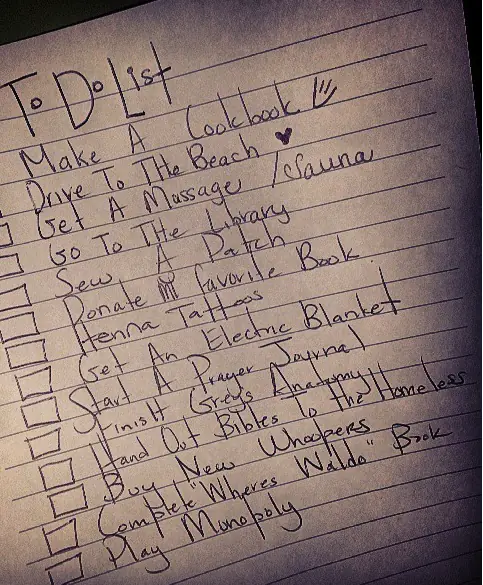 To Do List
Make A Cookbook
Drive To THe Beach ♥
Get A Massage /Sauna
Go To THe Library
Sew A Patch
Donate favorite Book
Henna Tattoos
Get An Electric Blanket
Start A Prayer Journal
FinisH Greys Anatomy
Hand Out Bibles To the Homeless
Buy New Whoopers
Complete "Wheres Waldo" Book
Play Monopoly